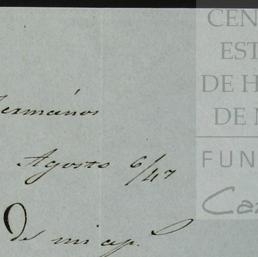 CEN
EST
DE H
DE M
FUN
Ca
ermanos
Agosto 6/47
De mi ap.